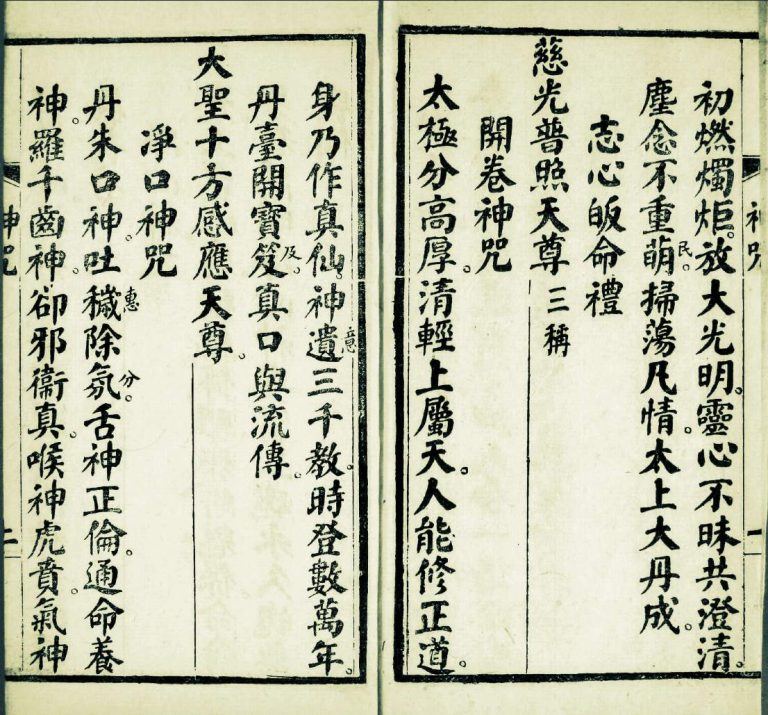 初燃燭炬。放大光明。靈心不昧共澄清。
塵念不重萌民。掃蕩凡情。太上大丹成。
志心皈命禮
慈光普照天尊三稱
開卷神咒
太極分高厚。清輕上屬天。人能修正道。
身乃作真仙。神遺意三千教。時登數萬年。
丹臺開寶笈及。真口與流傳。
大聖十方感應天尊。
淨口神咒
丹朱口神。吐穢惠除氛分。舌神正倫。通命養
神。羅千齒神。卻邪衞真。喉神虎賁。氣神
神咒
一
神咒
二